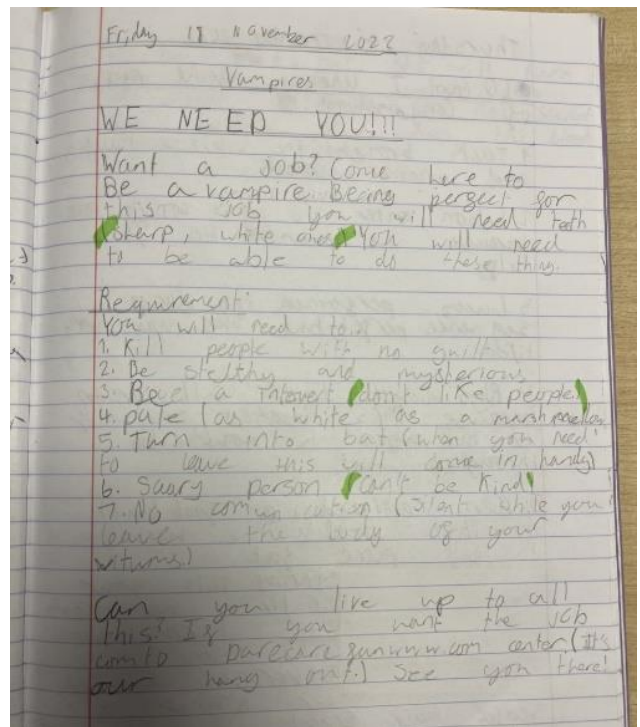 Friday 18 November 2022
Vampires
WE NEED YOU!!!
Want a job? Come here to
Be a vampire Being perfect for
this job you will need teeth
(sharp, white ones) You will need
to be able to do these thing.
Requirement:
You will need to:
1. Kill people with no guilt
2. Be stelthy and mysterious
3. Be a intovert (don't like people)
4. pale (as white as a marshmellow
5. Turn into bat (when you need
to leave this will come in handy)
6. Scary person (can't be kind)
7. No (silent while you
leave the body of your
Can you live up to all
this? If you want the job
center. (It's
our hang out.) See you there!